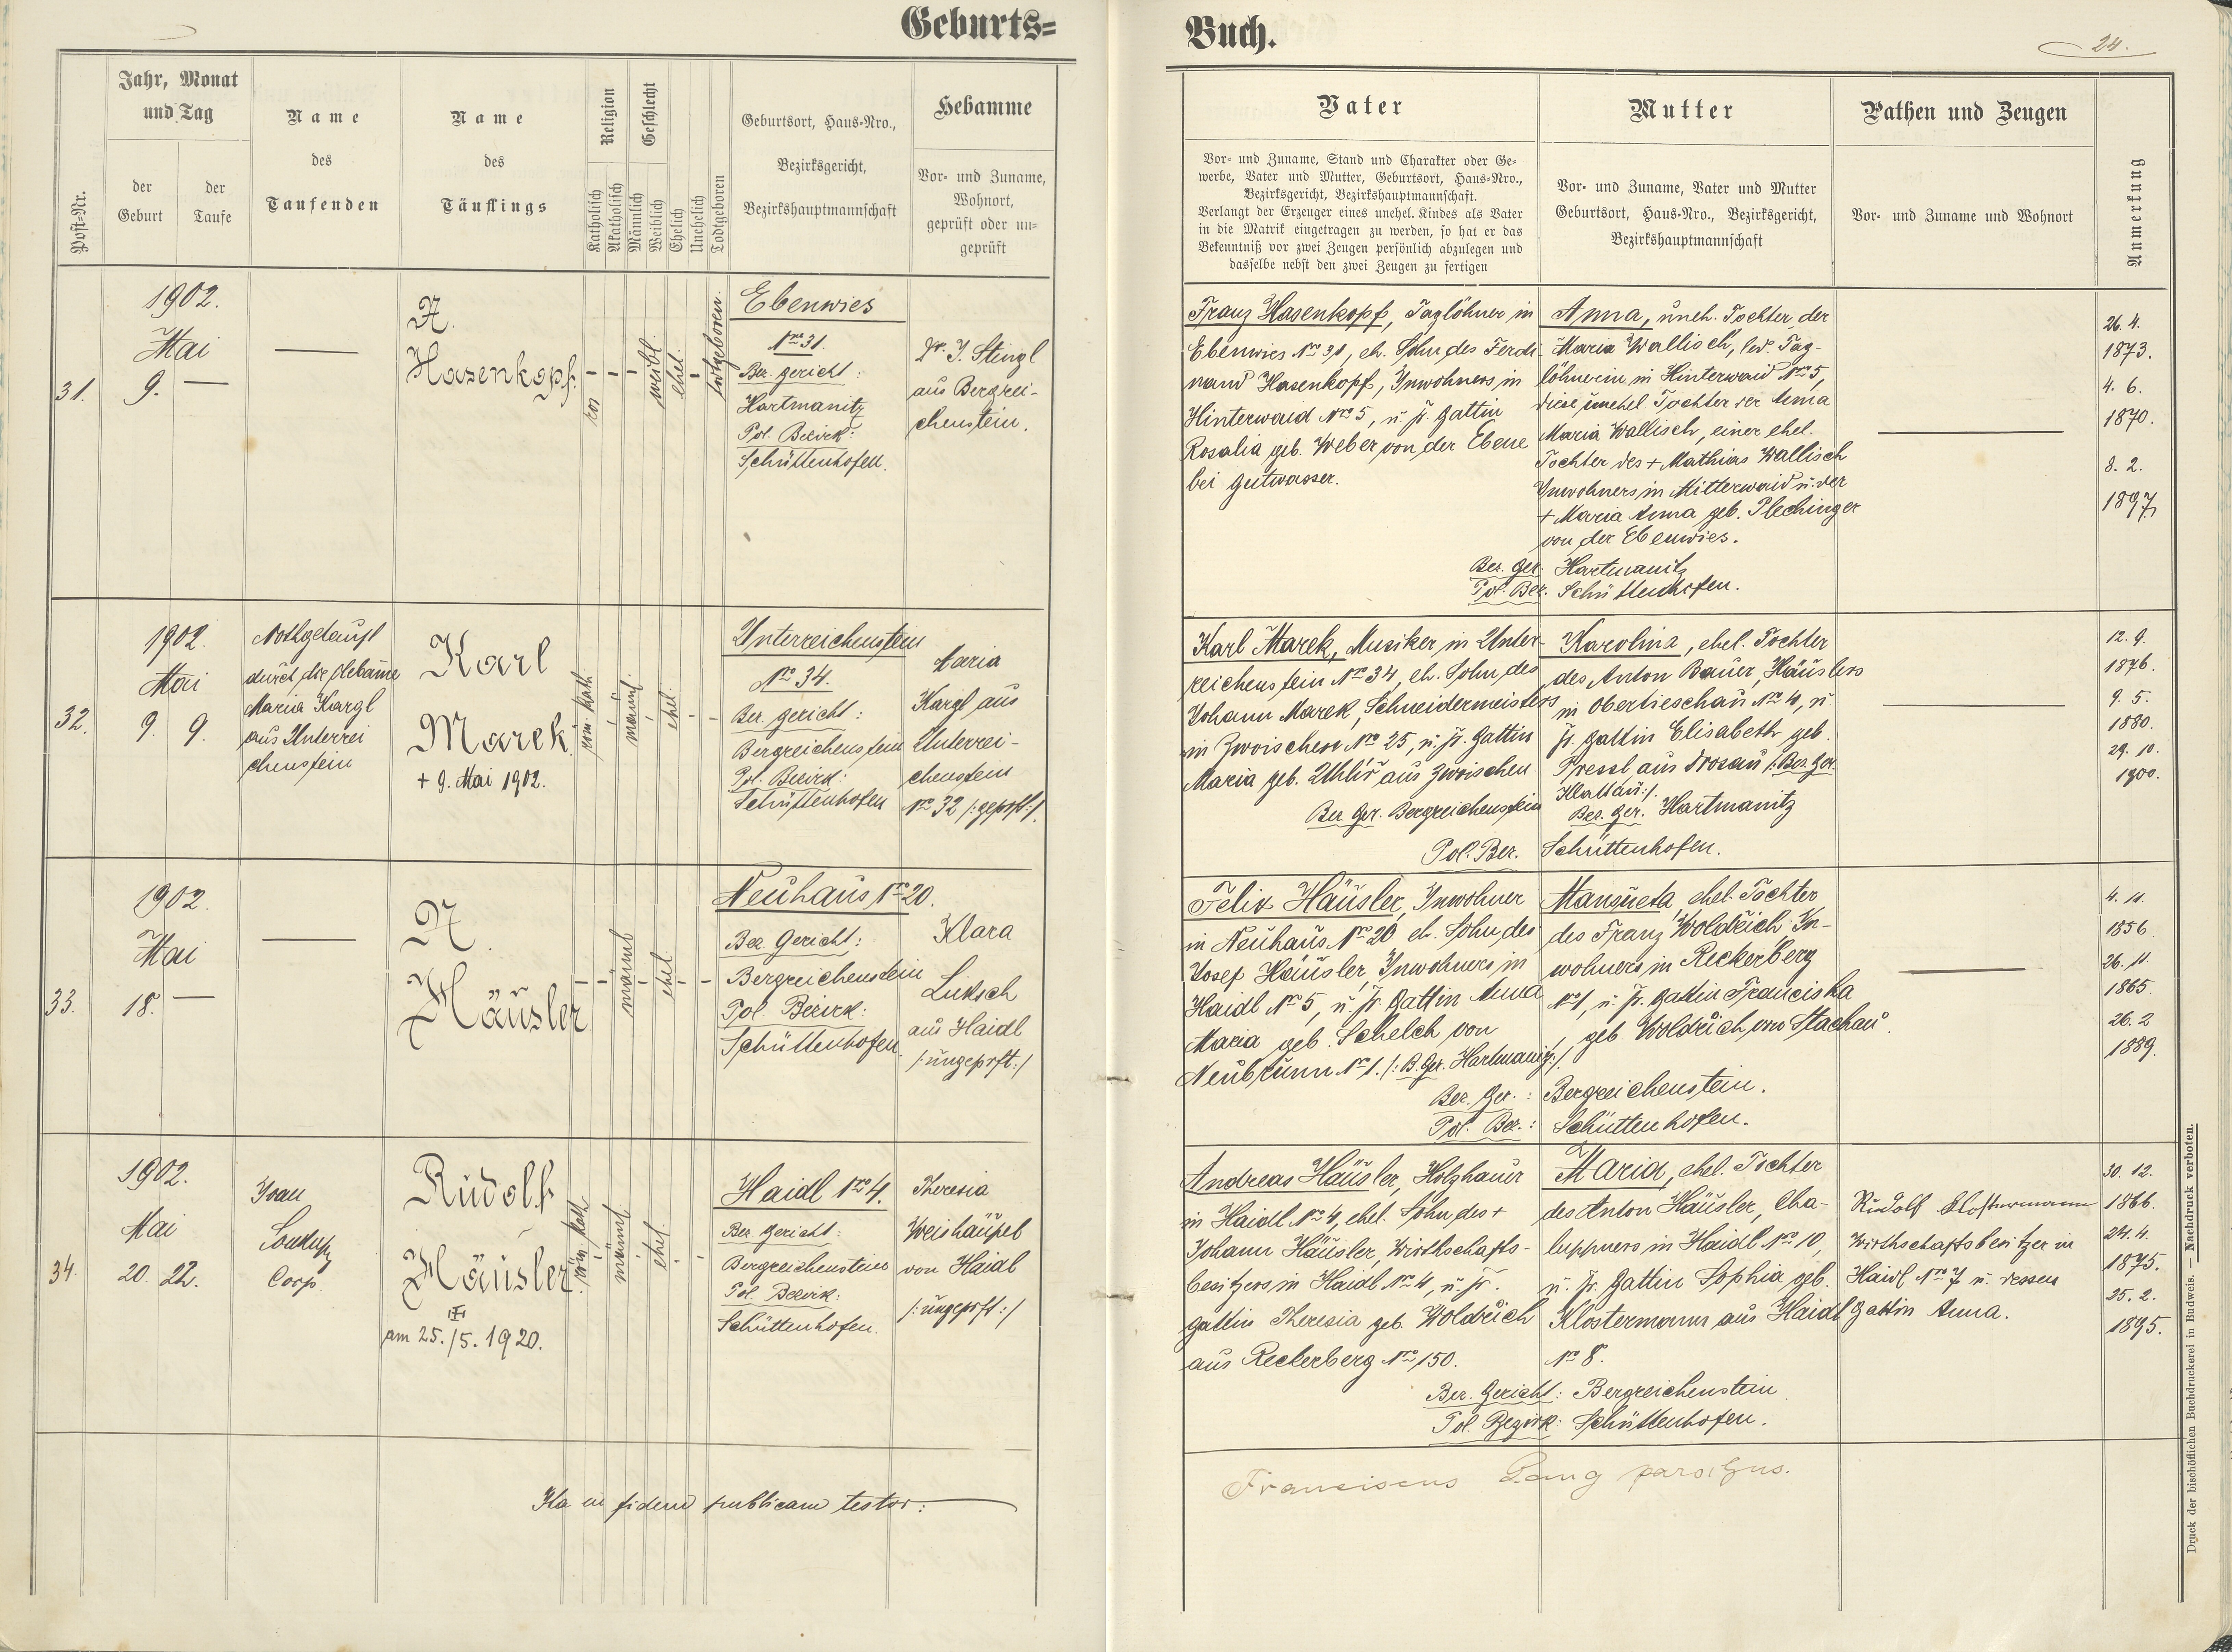 Geburts=
Jahr, Monat
und Tag
Post-Nr.
der
Geburt
der
Taufe
Name
des
Taufenden
Name
des
Täuflings
Religion
Geschlecht
Katholisch
Akatholisch
Männlich
Weiblich
Ehelich
Unehelich
Todtgeboren
Geburtsort, Haus-Nro.,
Bezirksgericht,
Bezirkshauptmannschaft
Hebamme
Vor- und Zuname,
Wohnort,
geprüft oder un-
geprüft
31.
1902.
Mai
9. —
N.
Hasenkopf
weibl.
ehel.
totgeboren.
Ebenwies
Nro 31.
Bez. gericht:
Hartmanitz
Pol. Bezirk:
Schüttenhofen.
Dr. J. Stingl
aus Bergrei-
chenstein.
32.
1902.
Mai
9. 9.
Nothgetauft
durch die Hebame
Maria Kargl
aus Unterrei
chenstein
Karl
Marek.
+ 9. Mai 1902.
röm. kath.
männl.
ehel.
Unterreichenstein
Nro 34.
Bez. gericht:
Bergreichenstein
Pol. Bezirk:
Schüttenhofen
Maria
Kargl aus
Unterrei-
chenstein
Nro 32 /:geprft:/.
33.
1902.
Mai
18. —
N.
Häusler
männl
ehel.
Neuhaus Nro 20.
Bez. Gericht:
Bergreichenstein
Pol. Bezirk:
Schüttenhofen.
Klara
Luksch
aus Haidl
/:ungeprft:/
34.
1902.
Mai
20. 22.
Joan
Soukup
Coop
Rudolf
Häusler.
am 25./5. 1920.
röm. kath
männl.
ehel.
Haidl Nro 4.
Bez. Gericht:
Bergreichenstein
Pol. Bezirk:
Schüttenhofen.
Theresia
Weishäupel
von Haidl
/:ungeprft:/
Ita in fidem publicam testor:
Buch.
24.
Vater
Vor- und Zuname, Stand und Charakter oder Ge-
werbe, Vater und Mutter, Geburtsort, Haus-Nro.,
Bezirksgericht, Bezirkshauptmannschaft.
Verlangt der Erzeuger eines unehel. Kindes als Vater
in die Matrik eingetragen zu werden, so hat er das
Bekenntniß vor zwei Zeugen persönlich abzulegen und
dasselbe nebst den zwei Zeugen zu fertigen
Mutter
Vor- und Zuname, Vater und Mutter
Geburtsort, Haus-Nro., Bezirksgericht,
Bezirkshauptmannschaft
Pathen und Zeugen
Vor- und Zuname und Wohnort
Anmerkung
Franz Hasenkopf, Taglöhner in
Ebenwies Nro 31, eh. Sohn des Ferdi
nand Hasenkopf, Inwohners in
Hinterwaid Nro 5, u. sr. Gattin
Rosalia geb. Weber von der Ebene
bei Gutwasser.
Anna, uneh. Tochter der
Maria Wallisch, led. Tag-
löhnerin in Hinterwaid Nro 5,
diese unehel. Tochter der Anna
Maria Wallisch, einer ehel.
Tochter des + Mathias Wallisch
Inwohners in Mitterwaid u. der
+ Maria Anna geb. Plechinger
von der Ebenwies.
Bez. Ger. Hartmanitz
Pol. Bez. Schüttenhofen.
26. 4.
1873.
4. 6.
1870.
8. 2.
1897
Karl Marek, Musiker in Unter-
reichenstein Nro 34, eh. Sohn des
Johann Marek, Schneidermeisters
in Zwoischen Nro 25, u. sr. Gattin
Maria geb. Uhlíř aus Zwoischen
Bez. Ger. Bergreichenstein
Karolina, ehel. Tochter
des Anton Bauer, Häuslers
in Obertieschau Nro 4, u.
sr. Gattin Elisabeth geb.
Pressl aus Drosau /:Bez. Ger.
Klattau:/.
Bez. Ger. Hartmanitz
Pol. Bez. Schüttenhofen.
12. 9.
1876.
9. 5.
1880.
29. 10.
1900.
Felix Häusler, Inwohner
in Neuhaus Nro 20 eh. Sohn des
Josef Häusler, Inwohners in
Haidl Nro 5, u. sr. Gattin Anna
Maria geb. Schelch von
Neubrunn Nro 1. /: B. Ger. Hartmanitz:/
Mansueta, ehel. Tochter
des Franz Woldřich, In-
wohners in Reckerberg
Nro 1, u. sr. Gattin Franciska
geb. Woldřich von Stachau.
Bez. Ger.: Bergreichenstein.
Pol. Bez.: Schüttenhofen.
4. 11.
1856.
26. 11.
1865.
26. 2
1889.
Andreas Häusler, Holzhauer
in Haidl Nro 4, ehel. Sohn des +
Johann Häusler, Wirthschafts-
besitzers in Haidl Nro 4, u. sr.
Gattin Theresia geb. Woldřich
aus Reckerberg Nro 150.
Maria, ehel. Tochter
des Anton Häusler, Cha-
luppners in Haidl Nro 10,
u. sr. Gattin Sophia geb.
Klostermann aus Haidl
Nro 8.
Bez. Gericht: Bergreichenstein
Pol. Bezirk: Schüttenhofen.
Rudolf Klostermann
Wirthschaftsbesitzer in
Haidl Nro 7 u. dessen
Gattin Anna.
30. 12.
1866.
24. 4.
1875.
25. 2.
1895.
Franciscus Lang
Druck der bischöflichen Buchdruckerei in Budweis. — Nachdruck verboten.